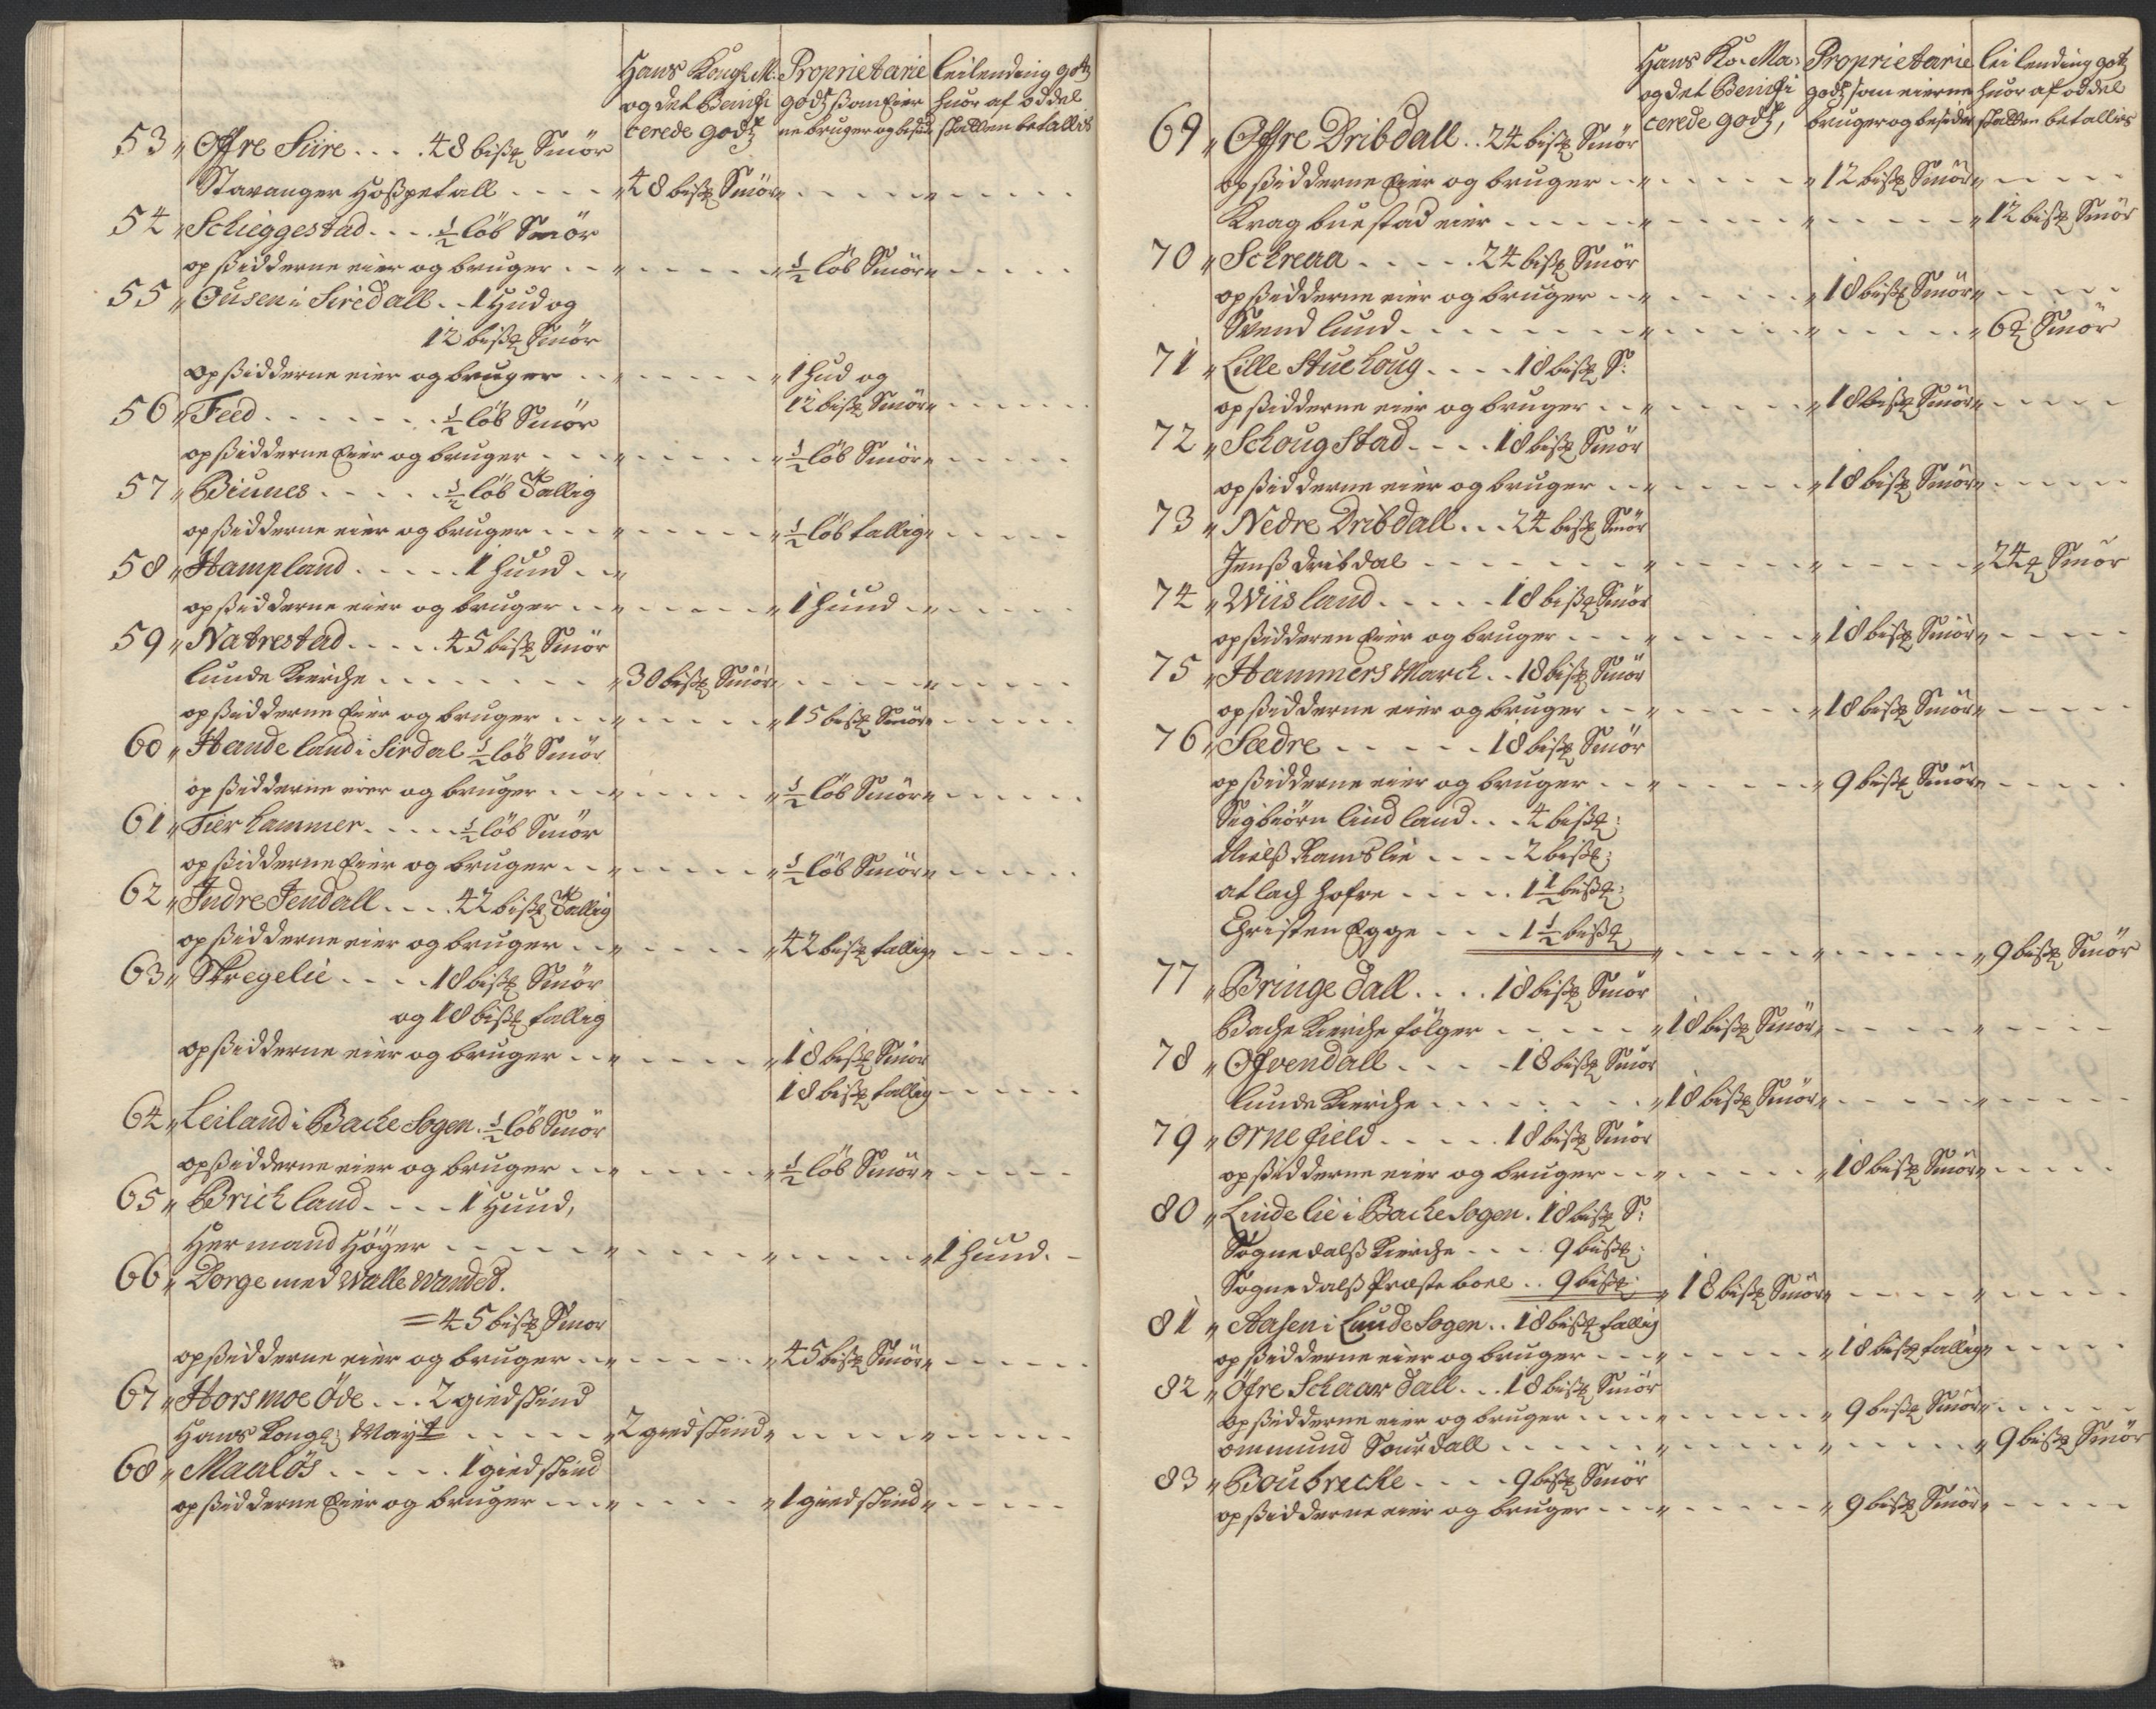 Hans Kongl. M: Proprietarie leilending godz
og det Benifi godz som Eier huor af oddel
cerede godz ne bruger og besider skatten betallis
53 „ Øfre Siire . . . . 48 bispd Smör
Stavanger Hospetall . . . . „ 48 bispd Smör
54 „ Schieggestad . . . . ½ löb Smör
opsidderne eier og bruger . . „ ½ löb Smör
55 „ Ousen i Siredall . . 1 Hud og
12 bispd Smör
opsidderne eier og bruger . . „ 1 hud og
12 bispd Smör
56 „ Feed . . . . . . . ½ löb Smör
opsidderne Eier og bruger . . . „ ½ löb Smör
57 „ Biunes . . . . . ½ löb Tallig
opsidderne eier og bruger . . . „ ½ löb tallig
58 „ Hampland . . . . . 1 huud . . „
opsidderne eier og bruger . . „ 1 huud
59 „ Natrestad . . . . . 45 bispd Smör
lunde Kirche . . . . . . . „ 30 bispd Smör
opsidderne Eier og bruger . . . „ 15 bispd Smör
60 „ Haandeland i Sirdal ½ löb Smör
opsidderne eier og bruger . . . „ ½ löb Smör
61 „ Fierhammer . . . . . ½ löb Smör
opsidderne Eier og bruger . . „ ½ löb Smör
62 „ Indre Jendall . . . . 42 bispd Tallig
opsidderne eier og bruger . . „ 42 bispd tallig
63 „ Skregelie . . . . 18 bispd Smör
og 18 bispd tallig
opsidderne eier og bruger . . „ 18 bispd Smör
18 bispd tallig
64 „ Leiland i Backe Sogen . ½ löb Smör
opsidderne eier og bruger . . „ ½ löb Smör
65 „ Brichland . . . . 1 Huud,
Hermand Höyer . . . . . „ 1 huud.
66 „ Dorge med Walle Wandet.
= 45 bispd Smör
opsidderne eier og bruger . . „ 45 bispd Smör
67 „ Horsmoe Öde . . . 2 giedskind
Hans Kongl. Mayt . . . . . „ 2 giedskind
68 „ Maalös . . . . . 1 giedskind
opsidderne Eier og bruger . . . „ 1 giedskind
Hans Ko. Ma: Proprietarie leilending godz
og det Benifi godz som eierne huor af oddel
cerede godz, bruger og besider skatten betallis
69 „ Øfre Dribdall . . 24 bispd Smör
opsidderne Eier og bruger . . „ 12 bispd Smör
Kragbuestad eier . . . . . „ 12 bispd Smör
70 „ Schreaa . . . . . 24 bispd Smör
opsidderne eier og bruger . . „ 18 bispd Smör
Svend lund . . . . . . . „ 6 pd Smör
71 „ Lille Stuehoug . . . . 18 bispd S:
opsidderne eier og bruger . . „ 18 bispd Smör
72 „ Schougstad . . . . 18 bispd Smör
opsidderne eier og bruger . . „ 18 bispd Smör
73 „ Nedre Dribdall . . . 24 bispd Smör
Jenß dribdal . . . . . . . „ 24 pd Smör
74 „ Wiisland . . . . . 18 bispd Smör
opsidderen Eier og bruger . . . „ 18 bispd Smör
75 „ Hammers March . . 18 bispd Smör
opsidderne eier og bruger . . „ 18 bispd Smör
76 „ Sædre . . . . . 18 bispd Smör
opsidderne eier og bruger . . „ 9 bispd Smör
Sigbiörn lindland . . . 4 bispd:
Nielß Ramslie . . . . 2 bispd:
atlach hofre . . . . . 1½ bispd:
Christen Egge . . . . 1½ bispd „ 9 bispd Smör
77 „ Bringedall . . . . 18 bispd Smör
Bache Kirche fölger . . . . . „ 18 bispd Smör
78 „ Ofvendall . . . . . 18 bispd Smör
lunde Kierche . . . . . . . „ 18 bispd Smör
79 „ Ornefield . . . . . 18 bispd Smör
opsidderne eier og bruger . . „ 18 bispd Smör
80 „ Lindelie i Backe Sogen . 18 bispd S:
Sognedalß Kirche . . . . 9 bispd:
Sognedalß Præsteboel . . 9 bispd: „ 18 bispd Smör
81 „ Aasen i Lunde Sogen . . 18 bispd tallig
opsidderne eier og bruger . . . „ 18 bispd tallig
82 „ Öfre Schaardall . . . 18 bispd Smör
opsidderne eier og bruger . . . „ 9 bispd Smör
ommund Sourdall . . . . . . „ 9 bispd Smör
83 „ Boubrecke . . . . 9 bispd Smör
opsidderne eier og bruger . . . „ 9 bispd Smör